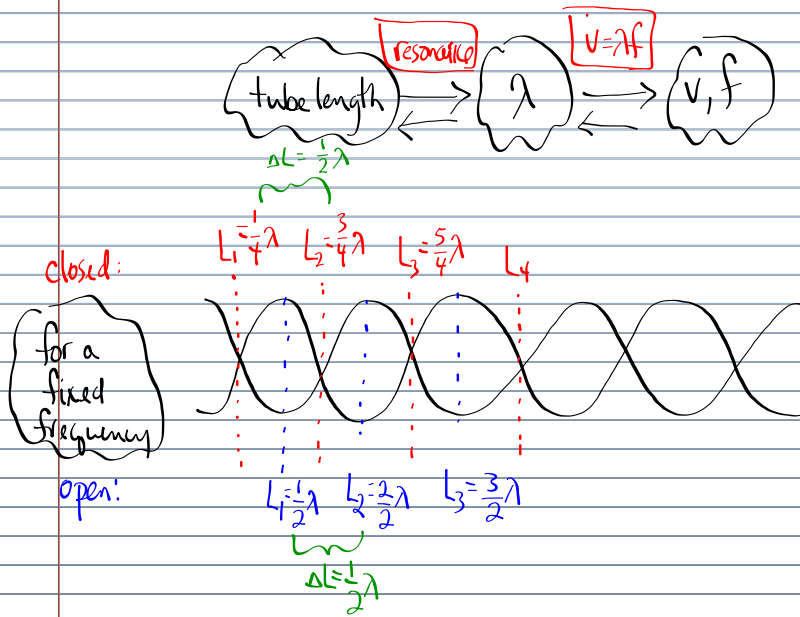 resonance
v=λf
tube length
λ
v, f
ΔL=1/2λ
L1=1/4λ
L2=3/4λ
L3=5/4λ
L4
closed:
for a
fixed
frequency
open:
L1=1/2λ
L2=2/2λ
L3=3/2λ
ΔL=1/2λ